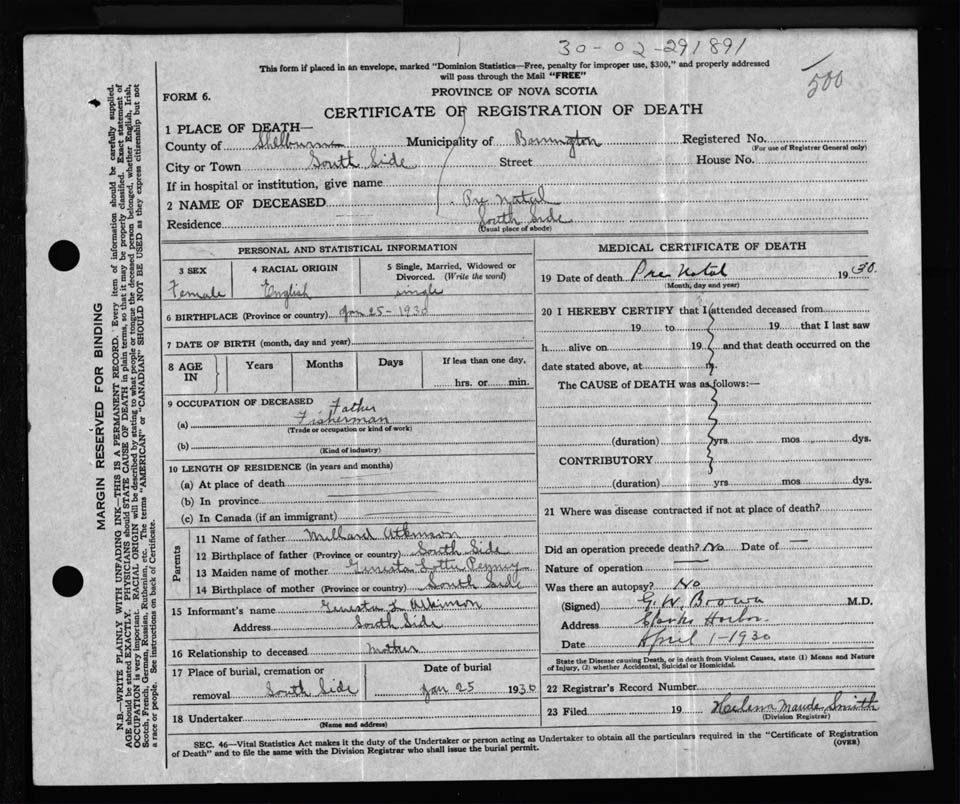 30-02-291891
500
This form if placed in an envelope, marked "Dominion Statistics—Free, penalty for improper use, $300," and properly addressed
will pass through the Mail "FREE"
FORM 6.
PROVINCE OF NOVA SCOTIA
CERTIFICATE OF REGISTRATION OF DEATH
1 PLACE OF DEATH—
County of Shelburne Municipality of Barrington Registered No.
(For use of Registrar General only)
City or Town South Side Street House No.
If in hospital or institution, give name
2 NAME OF DECEASED Pre Natal
Residence South Side
(Usual place of abode)
PERSONAL AND STATISTICAL INFORMATION
3 SEX 4 RACIAL ORIGIN 5 Single, Married, Widowed or
Divorced. (Write the word)
Female English single
6 BIRTHPLACE (Province or country) Jan 25-1930
7 DATE OF BIRTH (month, day and year)
8 AGE IN Years Months Days If less than one day,
hrs. or min.
9 OCCUPATION OF DECEASED Father
(a) Fisherman
(Trade or occupation or kind of work)
(b)
(Kind of industry)
10 LENGTH OF RESIDENCE (in years and months)
(a) At place of death
(b) In province
(c) In Canada (if an immigrant)
Parents
11 Name of father Millard Atkinson
12 Birthplace of father (Province or country) South Side
13 Maiden name of mother Genesta Lottie Penney
14 Birthplace of mother (Province or country) South Side
15 Informant's name Genesta L Atkinson
Address South Side
16 Relationship to deceased Mother
17 Place of burial, cremation or Date of burial
removal South Side Jan 25 1930
18 Undertaker
(Name and address)
MEDICAL CERTIFICATE OF DEATH
19 Date of death Pre Natal 1930.
(Month, day and year)
20 I HEREBY CERTIFY that I attended deceased from
19 to 19 that I last saw
h alive on 19 and that death occurred on the
date stated above, at m.
The CAUSE of DEATH was as follows:—
(duration) yrs mos dys.
CONTRIBUTORY
(duration) yrs mos dys.
21 Where was disease contracted if not at place of death?
Did an operation precede death? No Date of —
Nature of operation —
Was there an autopsy? No
(Signed) G. W. Brown M.D.
Address Clarks Harbor
Date April 1-1930
State the Disease causing Death, or in death from Violent Causes, state (1) Means and Nature
of Injury, (2) whether Accidental, Suicidal or Homicidal.
22 Registrar's Record Number
23 Filed 19 Helena Maude Smith
(Division Registrar)
SEC. 46—Vital Statistics Act makes it the duty of the Undertaker or person acting as Undertaker to obtain all the particulars required in the "Certificate of Registration
of Death" and to file the same with the Division Registrar who shall issue the burial permit.
(OVER)
MARGIN RESERVED FOR BINDING
N.B.—WRITE PLAINLY WITH UNFADING INK—THIS IS A PERMANENT RECORD. Every item of information should be carefully supplied.
AGE should be stated EXACTLY. PHYSICIANS should STATE CAUSE OF DEATH in plain terms, so that it may be properly classified. Exact statement of
OCCUPATION is very important. RACIAL ORIGIN will be described by stating to what people or tongue the deceased person belonged, whether English, Irish,
Scotch, French, German, Russian, Ruthenian, etc. The terms "AMERICAN" or "CANADIAN" SHOULD NOT BE USED as they express citizenship but not
a race or people. See instructions on back of Certificate.